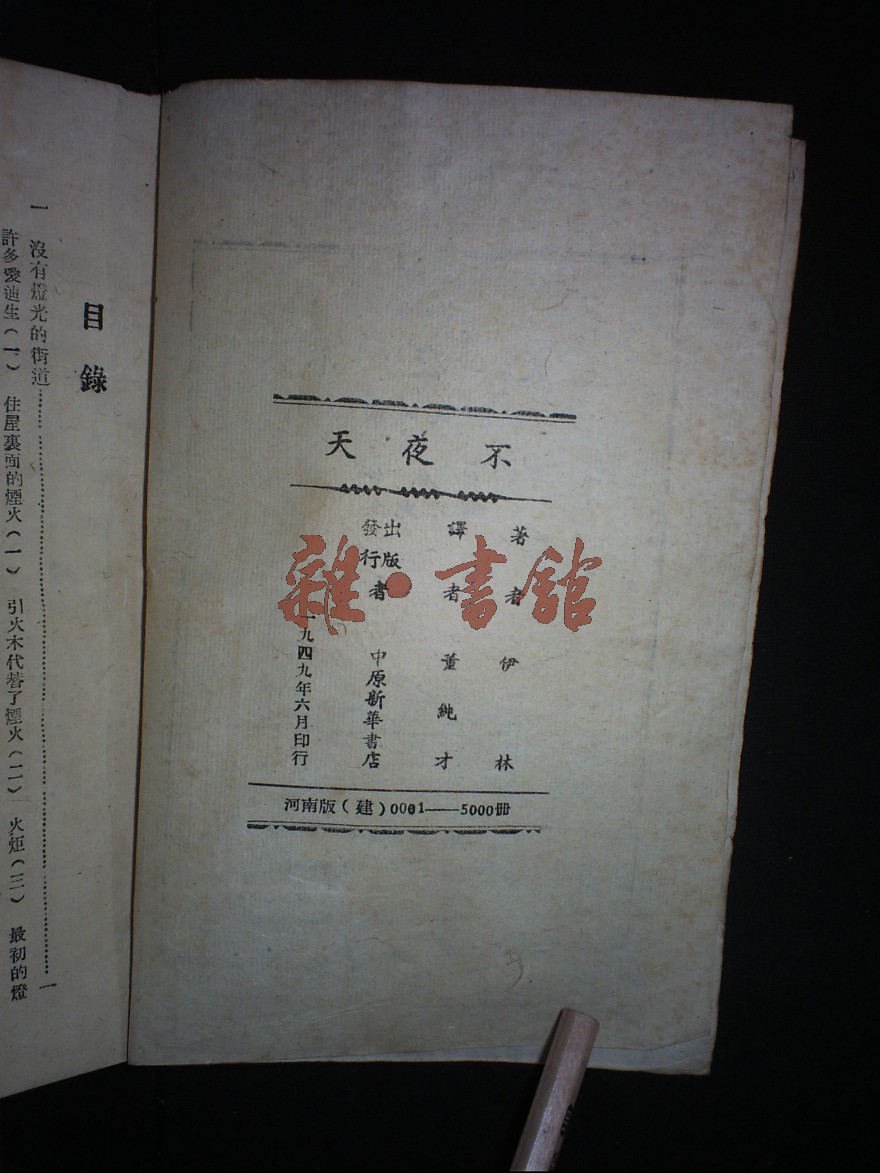 不夜天
著者 伊林
譯者 董純才
出版
發行者 中原新華書店
一九四九年六月印行
河南版（建）0001——5000冊
雜·書舘
目錄
一 沒有燈光的街道……一
許多愛迪生（一） 住屋裏面的煙火（一） 引火木代替了煙火（二） 火炬（三） 最初的燈